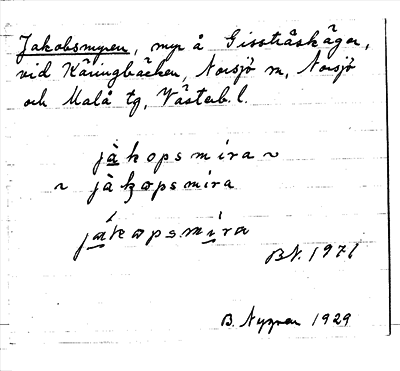 Jakobsmyren, myr å Gissträskägor,
vid Käringbäcken, Norsjö sn, Norsjö
och Malå tg, Västerb. l.
jàkopsmira ~
~ jàkopsmira
jákopsmira
BN. 1971
B. Nygren 1929